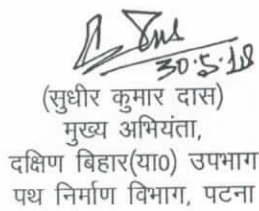 30.5.18
(सुधीर कुमार दास)
मुख्य अभियंता,
दक्षिण बिहार(या0) उपभाग
पथ निर्माण विभाग, पटना